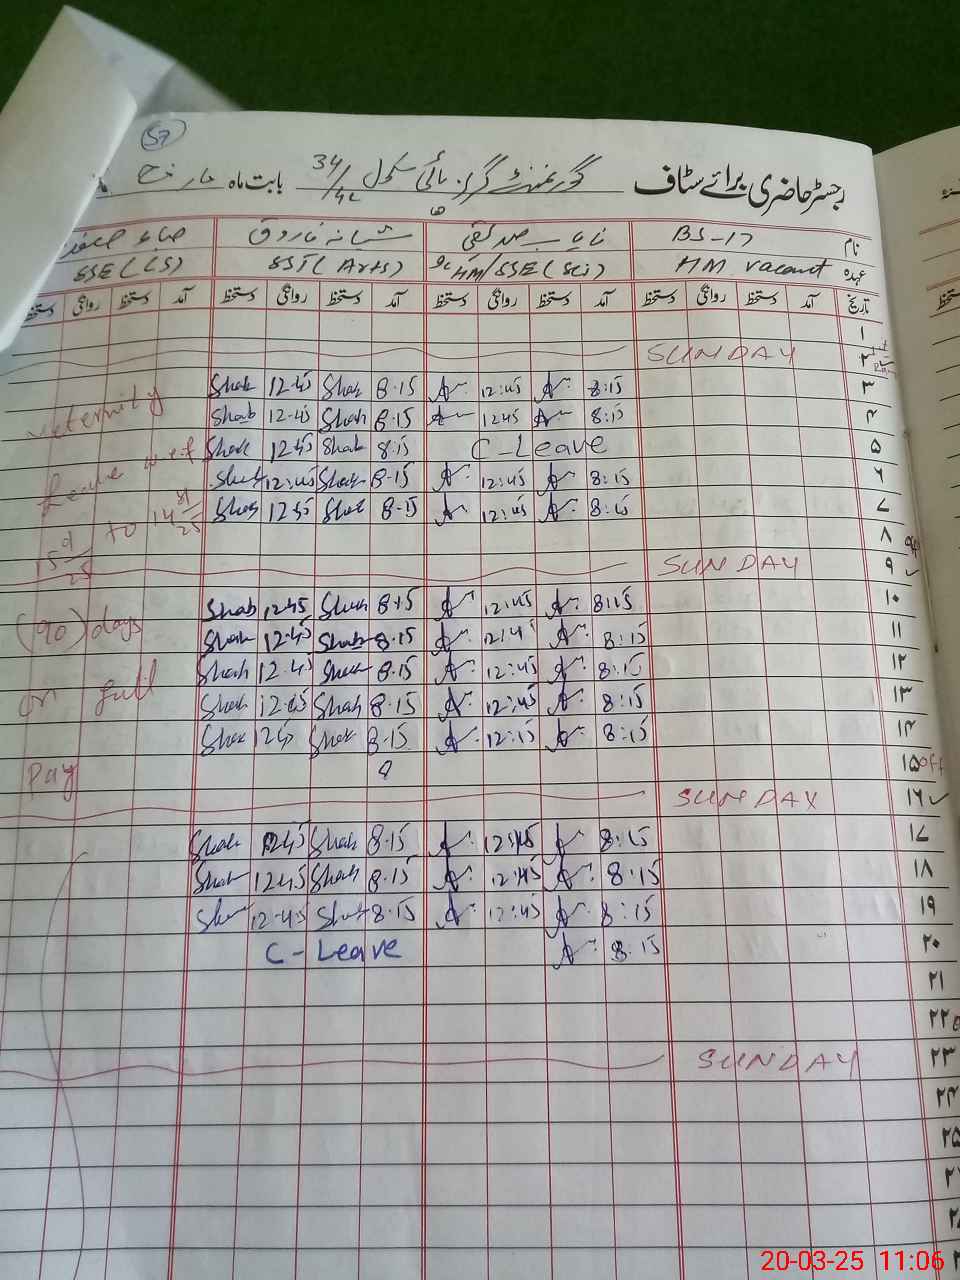 57
رجسٹر حاضری برائے سٹاف گورنمنٹ گرلز ہائی سکول 34/4L بابت ماہ مارچ
نام BS-17 شبانہ فاروق
عہدہ HM vacant I/c HM/SSE(Sci) SST(Arts) SSE(CS)
تاریخ آمد دستخط روانگی دستخط آمد دستخط روانگی دستخط آمد دستخط روانگی دستخط آمد دستخط روانگی دستخط
۱
۲ SUNDAY
۳ 8:15 12:45 8.15 Shab 12.45 Shab
۴ 8:15 12:45 8.15 Shab 12.45 Shab
۵ C-Leave 8:15 Shab 12:45 Shab
۶ 8:15 12:45 8.15 Shab 12:45 Shab
۷ 8:15 12:45 8.15 Shab 12:45 Shab
۸
۹ SUNDAY
۱۰ 8:15 12:45 8.15 Shab 12.45 Shab
۱۱ 8:15 12:45 8.15 Shab 12.45 Shab
۱۲ 8:15 12:45 8.15 Shab 12.45 Shab
۱۳ 8:15 12:45 8.15 Shab 12.45 Shab
۱۴ 8:15 12:15 8.15 Shab 12.45 Shab
۱۵ off
۱۶ SUNDAY
۱۷ 8:15 12:45 8.15 Shab 12.45 Shab
۱۸ 8:15 12:45 8.15 Shab 12.45 Shab
۱۹ 8:15 12:45 8.15 Shab 12.45 Shab
۲۰ 8:15 C-Leave
۲۱
۲۲
۲۳ SUNDAY
۲۴
۲۵
Meternity
Leave w.e.f
15 9/25 to 14 25
(90) days
on full
Pay
20-03-25 11:06